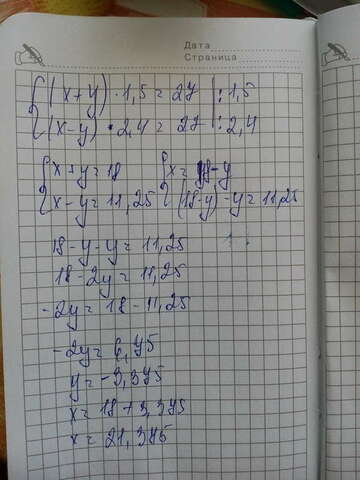 Дата
Страница
{(x+y)·1,5=27 |:1,5
(x-y)·2,4=27 |:2,4
{x+y=18 {x=18-y
x-y=11,25 (18-y)-y=11,25
18-y-y=11,25
18-2y=11,25
-2y=18-11,25
-2y=6,75
y=-3,375
x=18+3,375
x=21,375